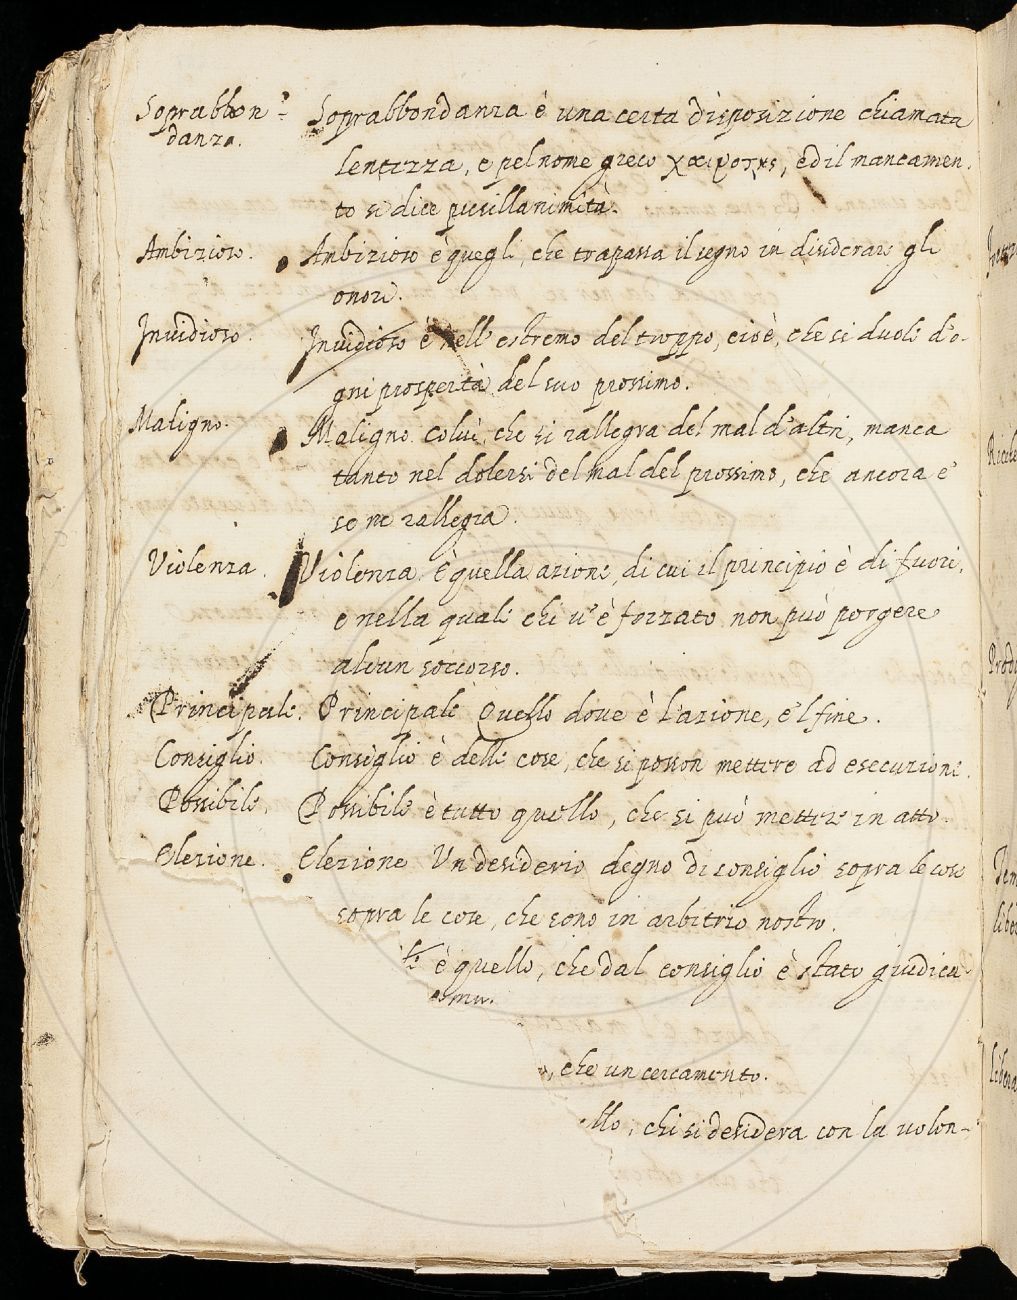 Soprabbon=
danza.
Soprabbondanza è una certa disposizione chiamata
lentezza, e pel nome greco ed il mancamen.
to si dice pusillanimità.
Ambizioso. Ambizioso è quegli, che trapassa il segno in disiderare gli
onori.
Invidioso. Invidioso è nell'estremo del troppo, cioè, che si duole d'o-
gni prosperità del suo prossimo.
Maligno. Maligno. Colui, che si rallegra del mal d'altri, manca
tanto nel dolersi del mal del prossimo, che ancora e'
se ne rallegra.
Violenza. Violenza è quella azione, di cui il principio è di fuori,
e nella quale chi v'è forzato non può porgere
alcun soccorso.
Principale. Principale Quello dove è l'azione, e'l fine.
Consiglio. Consiglio è delle cose, che si posson mettere ad esecuzione.
Possibile. Possibile è tutto quello, che si può mettere in atto.
Elezione. Elezione Un desiderio degno di consiglio sopra le cose
sopra le cose, che sono in arbitrio nostro.
è quello, che dal consiglio è stato giudica
, che un cercamento.
llo, chi si desidera con la volon-